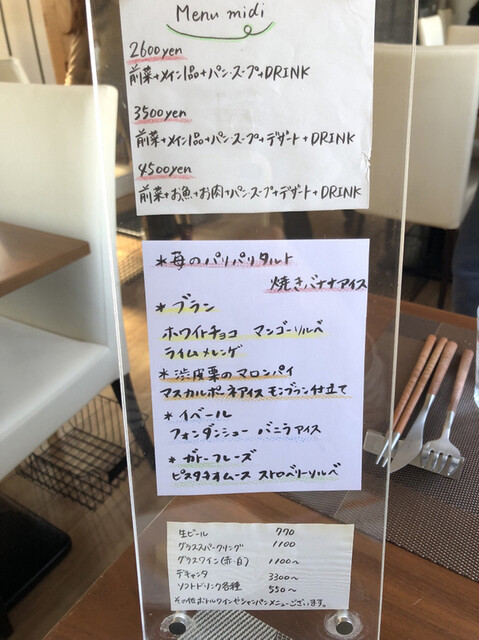 Menu midi
2600yen
前菜+メイン1品+パン・スープ+DRINK
3500yen
前菜+メイン1品+パン・スープ+デザート+DRINK
4500yen
前菜+お魚+お肉+パン・スープ+デザート+DRINK
*苺のパリパリタルト
焼きバナナアイス
*ブラン
ホワイトチョコ マンゴーソルベ
ライムメレンゲ
*渋皮栗のマロンパイ
マスカルポーネアイス モンブラン仕立て
*イベール
フォンダンシュー バニラアイス
*ガトーフレーズ
ピスタチオムース ストロベリーソルベ
生ビール 770
グラススパークリング 1100
グラスワイン(赤・白) 1100〜
デキャンタ 3300〜
ソフトドリンク各種 550〜
その他ボトルワインやシャンパンメニューございます。